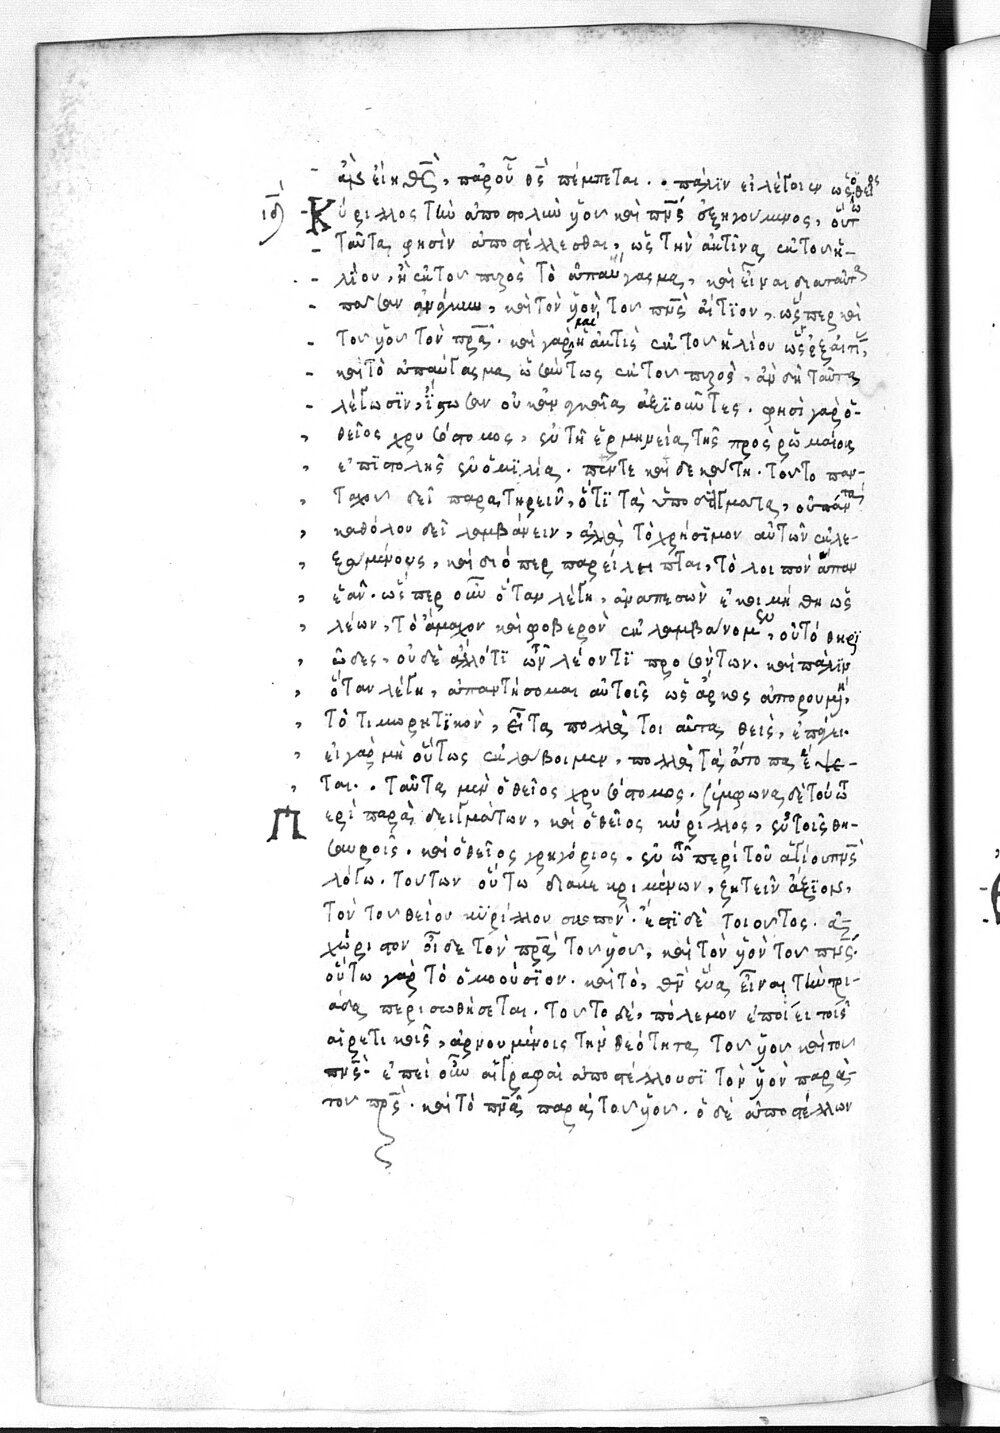 πέμπεται. πάλιν εἰ λέγοιεν ὡς ὁ θεῖος
ιθ Κύριλλος τὴν ἀποστολὴν υἱοῦ καὶ πνς ἐξηγούμενος, οὕτω
ταῦτα φησὶν ἀποστέλλεσθαι, ὡς τὴν ἀκτῖνα ἐκ τοῦ ἡ-
λίου, ἢ ἐκ τοῦ πυρὸς τὸ ἀπαύγασμα, καὶ εἶναι
πᾶσαν ἀνάγκην, καὶ τὸν υἱὸν τοῦ πνς αἴτιον, ὥσπερ καὶ
τοῦ υἱοῦ τὸν πρα. καὶ γὰρ καὶ ἡ ἀκτὶς ἐκ τοῦ ἡλίου ὡς ἐξ αἰτίου,
καὶ τὸ ἀπαύγασμα ὡσαύτως ἐκ τοῦ πυρὸς, ἂν δὴ ταῦτα
λέγωσϊν, ἴστωσαν οὐκ ἀξϊοῦντες. φησὶ γὰρ ὁ
θεῖος χρυσόστομος, ἐν τῇ ἑρμηνεία τῆς πρὸς ῥωμαίους
ἐπϊστολῆς ἐν ὁμϊλία. πέντε καὶ δεκάτη. τοῦτο παν-
ταχοῦ δεῖ παρατηρεῖν, ὅτϊ τὰ ὑποδείγματα, οὐ πάντα
καθόλου δεῖ λαμβάνειν, ἀλλὰ τὸ χρήσϊμον αὐτῶν ἐκλε-
ξαμένους, καὶ διόπερ παρείληπται, τὸ λοιπὸν ἅπαν
ἐᾶν. ὥσπερ οὖν ὅταν λέγη, ἀναπεσὼν ἐκοιμήθη ὡς
λέων, τὸ ἄμαχον καὶ φοβερὸν ἐκλαμβάνομεν, οὐ τὸ θηρϊ
ῶδες, οὐδὲ ἄλλό τϊ τῶν λέοντϊ προσόντων. καὶ πάλϊν
ὅταν λέγη, ἀπαντήσομαι αὐτοῖς ὡς ἄρκος ἀπορουμένη,
τὸ τιμωρητϊκὸν, εἶτα πολλὰ τοιαῦτα θεὶς, ἐπάγει.
εἰ γὰρ μὴ οὕτως ἐκλάβοιμεν, πολλὰ τὰ ἄτοπα ἕψε-
ται. ταῦτα μὲν ὁ θεῖος χρυσόστομος. σύμφωνα δὲ τούτω
Περὶ παραδειγμάτων, καὶ ὁ θεῖος κύριλλος, ἐν τοῖς θη-
σαυροῖς. καὶ ὁ θεῖος γρηγόριος. ἐν τῶ περὶ τοῦ ἁγίου πνς
λόγω. τούτων οὕτω διακεκριμένων, ζητεῖν ἄξϊον,
τὸν τοῦ θείου κϋρίλλου σκοπόν. ἔστϊ δὲ τοιοῦτος.
χώριστον οἶδε τὸν πρα τοῦ υἱοῦ, καὶ τὸν υἱὸν τοῦ πνς.
οὕτω γὰρ τὸ ὁμοούσϊον. καὶ τὸ, θν ἕνα εἶναι τὴν τρι-
άδα περισωθήσεται. τοῦτο δὲ, πόλεμον ἐποίει τοῖς
αἱρετικοῖς, ἀρνουμένοις τὴν θεότητα τοῦ υἱοῦ καὶ τοῦ
πνς. ἐπεὶ οὖν αἱ γραφαὶ ἀποστέλλουσϊ τὸν υἱὸν παρὰ
τοῦ πρς. καὶ τὸ πνα παρὰ τοῦ υἱοῦ. ὁ δὲ ἀποστέλλων